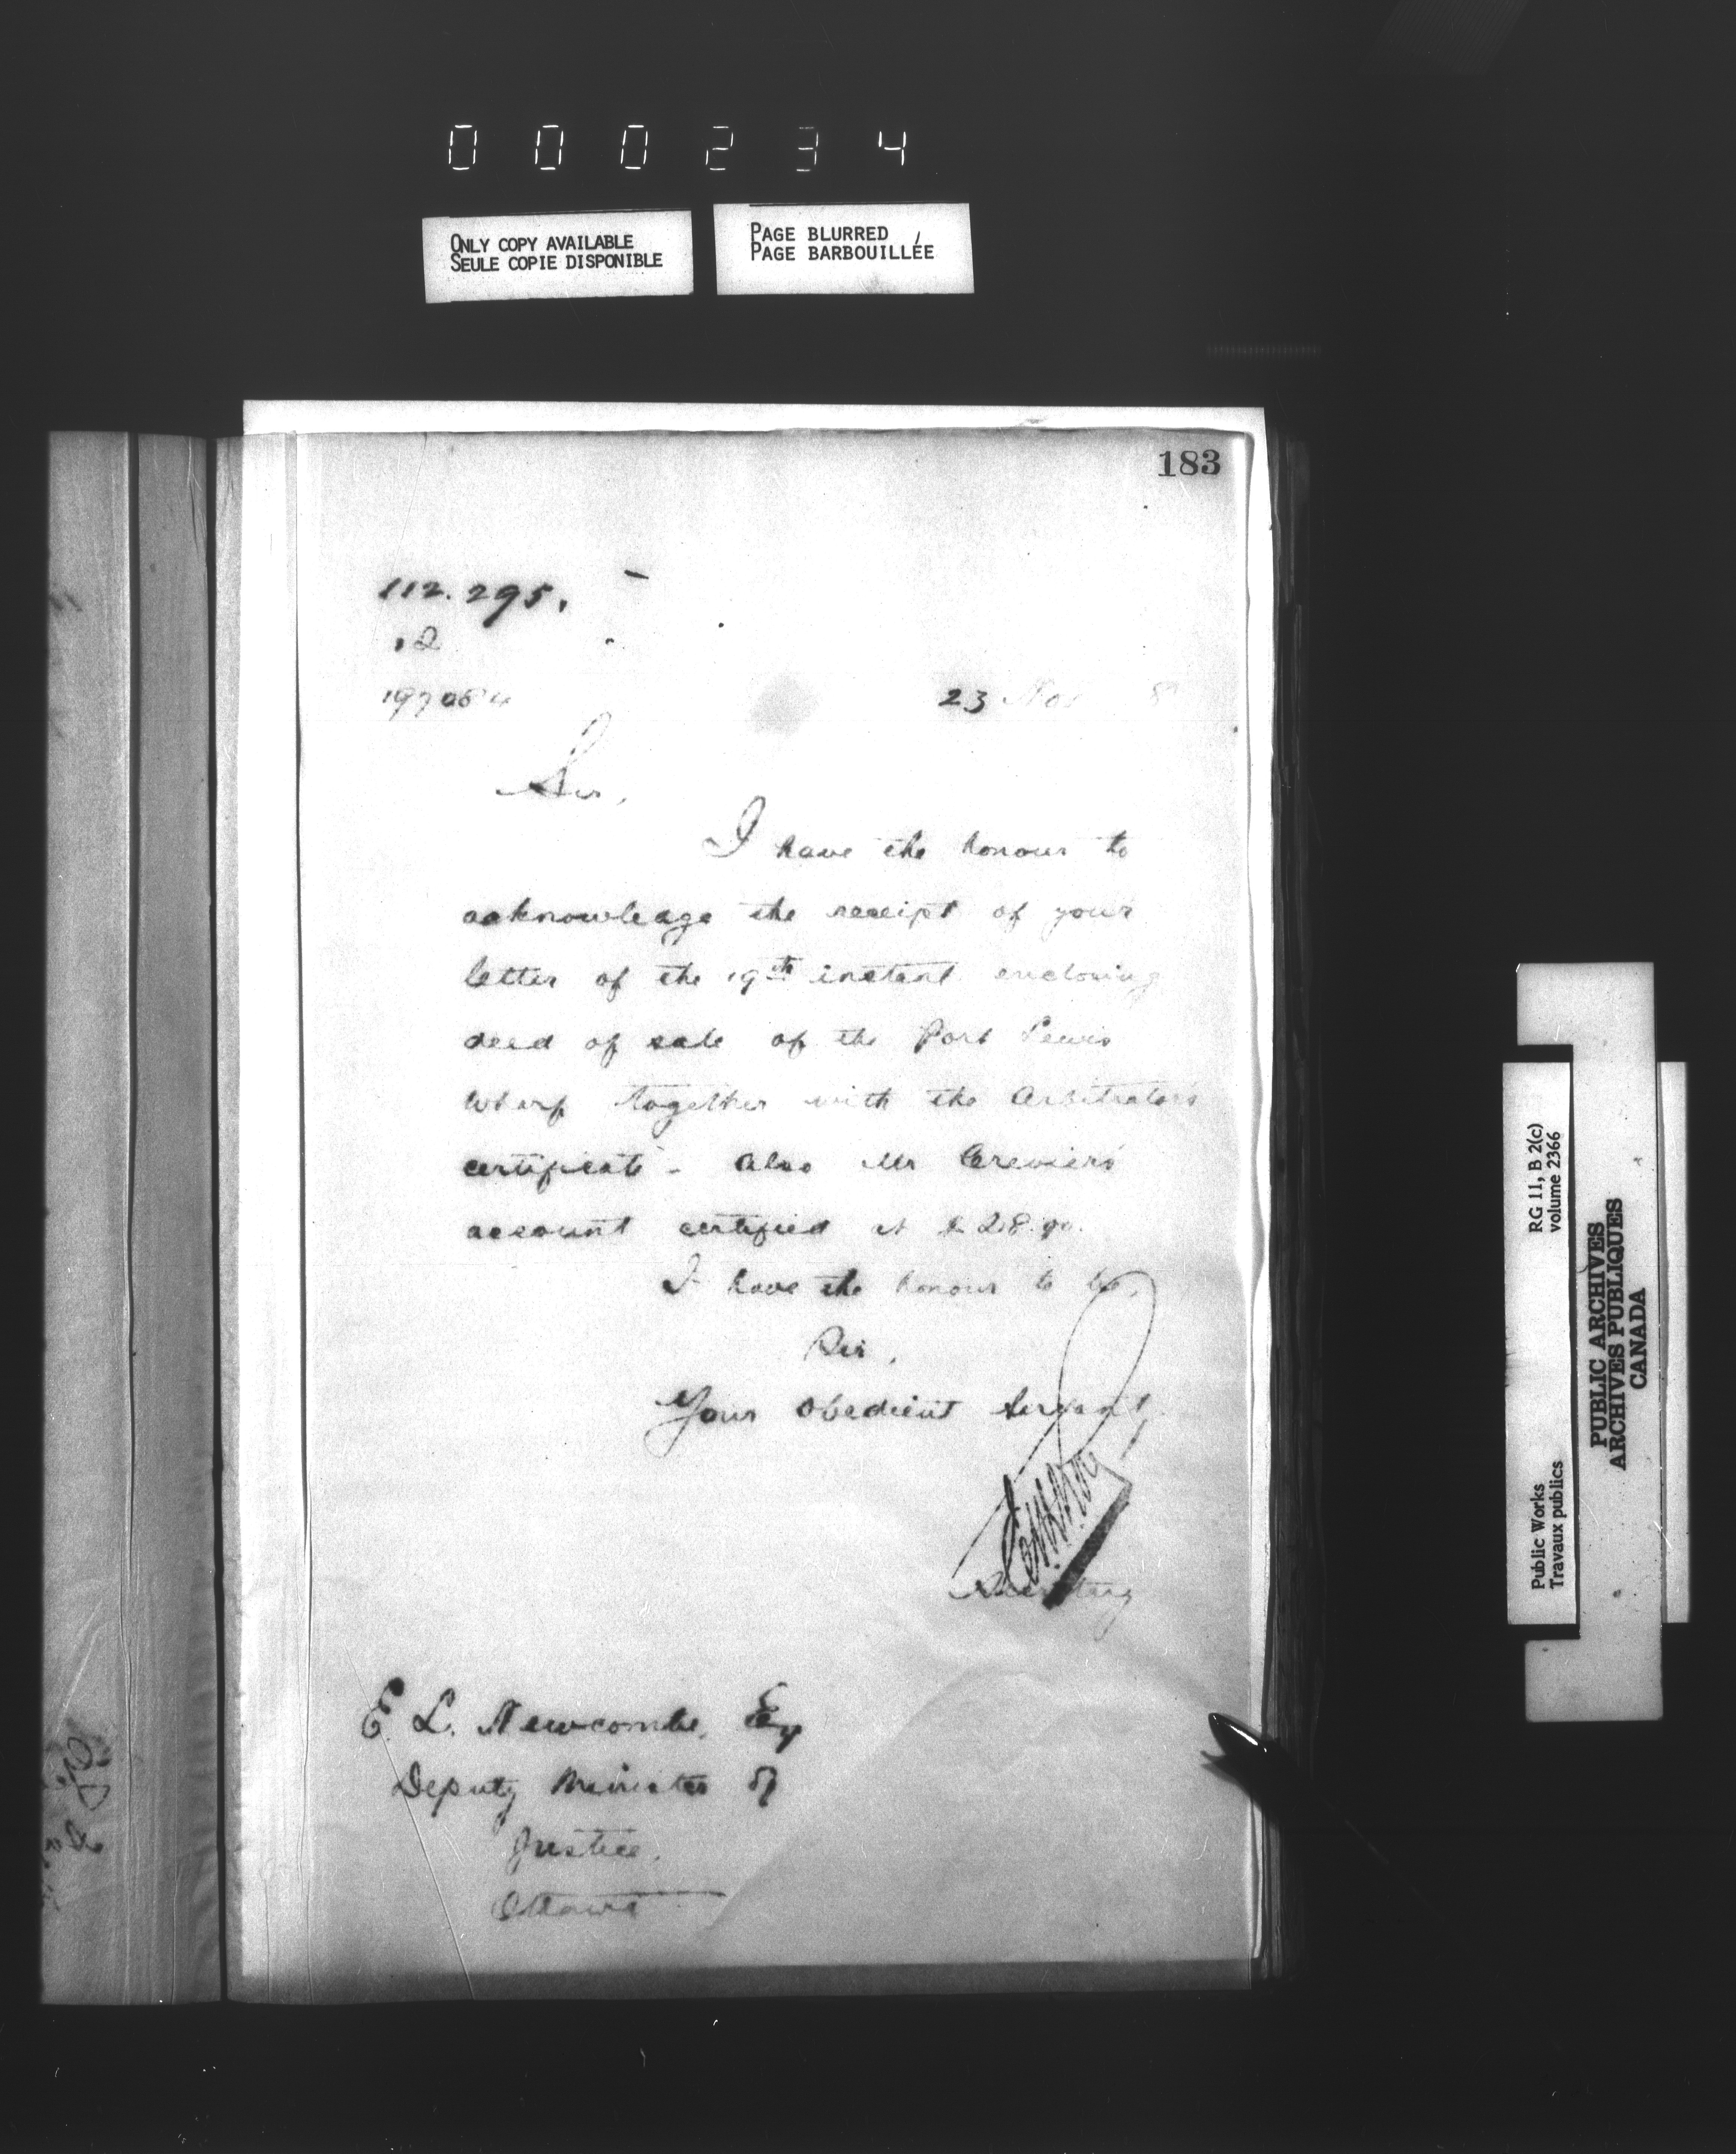 000234
ONLY COPY AVAILABLE
SEULE COPIE DISPONIBLE
PAGE BLURRED
PAGE BARBOUILLÉE
183
112.295.
197084
23 Nov
Sir,
I have the honour to
acknowledge the receipt of your
letter of the 19th instant enclosing
deed of sale of the Port Lewis
Wharf together with the Arbitrator's
certificate - Also Mr Crevier's
account certified at $28.90.
I have the honour to be,
Sir,
Your obedient servant,
Secretary
E. L. Newcombe, Esq
Deputy Minister of
Justice,
Ottawa
RG 11, B 2(c)
volume 2366
Public Works
Travaux publics
PUBLIC ARCHIVES
ARCHIVES PUBLIQUES
CANADA